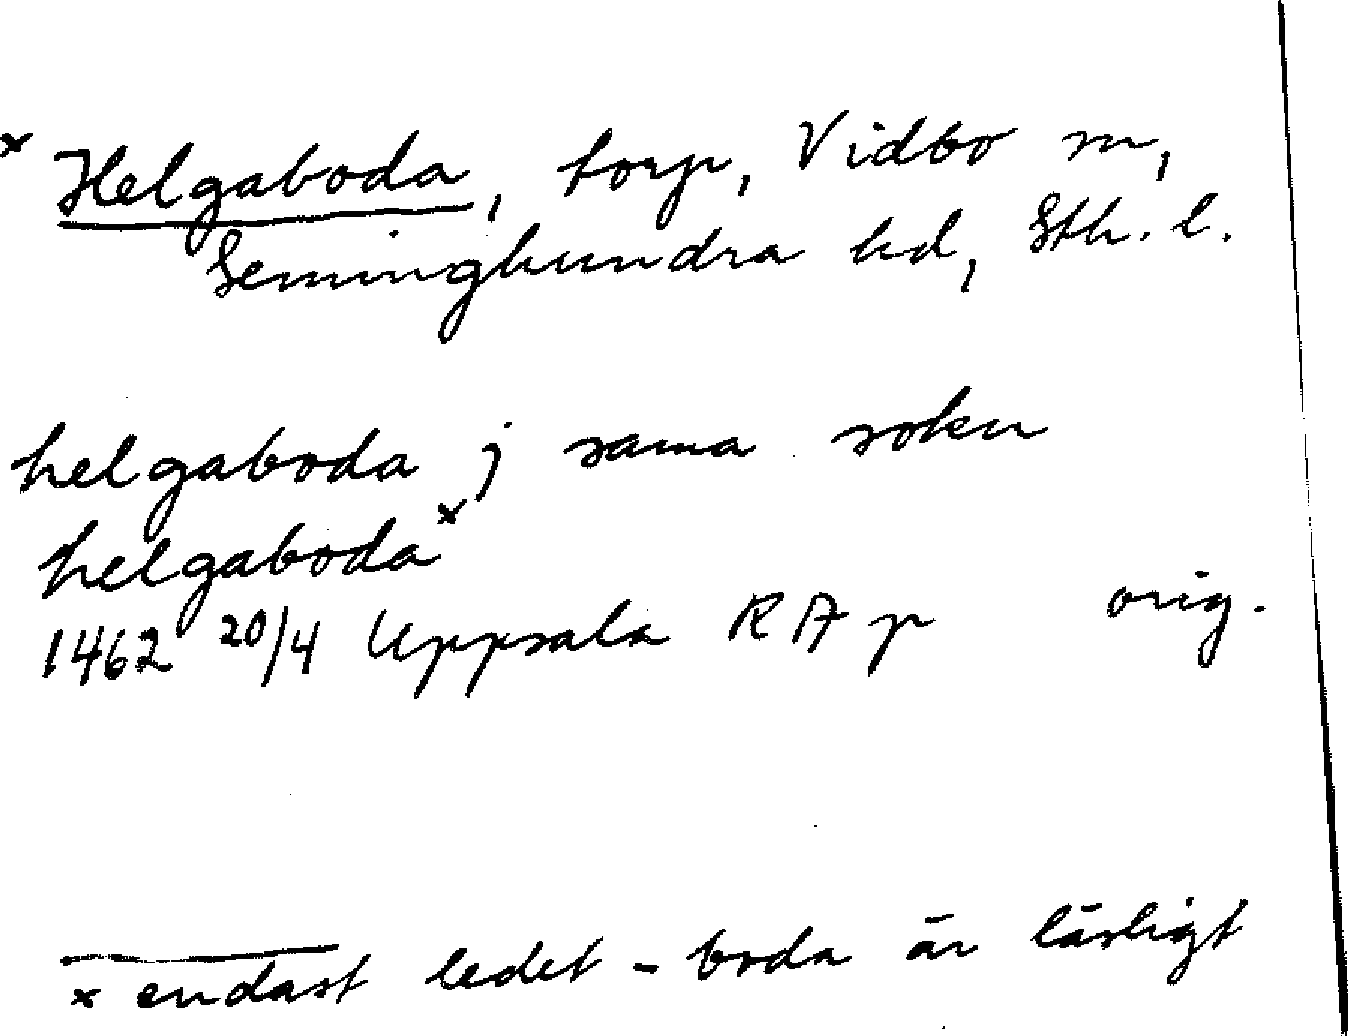 × Helgaboda, torp, Vidbo sn,
Seminghundra hd, Sth. l.
helgaboda j sama sokn
helgaboda×
1462 20/4 Uppsala RA p orig.
× endast ledet - boda är läsligt